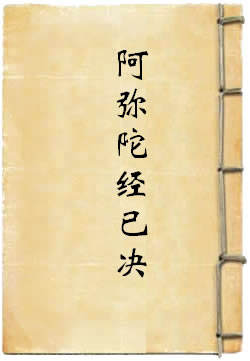 阿弥陀经已决